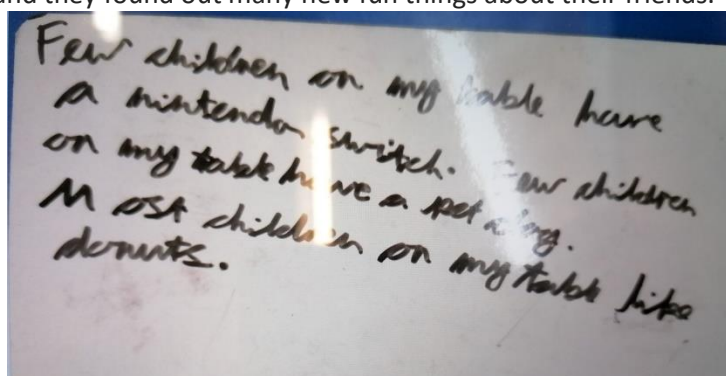 and they found out many new fun things about their friends.
Few children on my table have
a nintendo switch. Few children
on my table have a pet dog.
Most children on my table like
donuts.